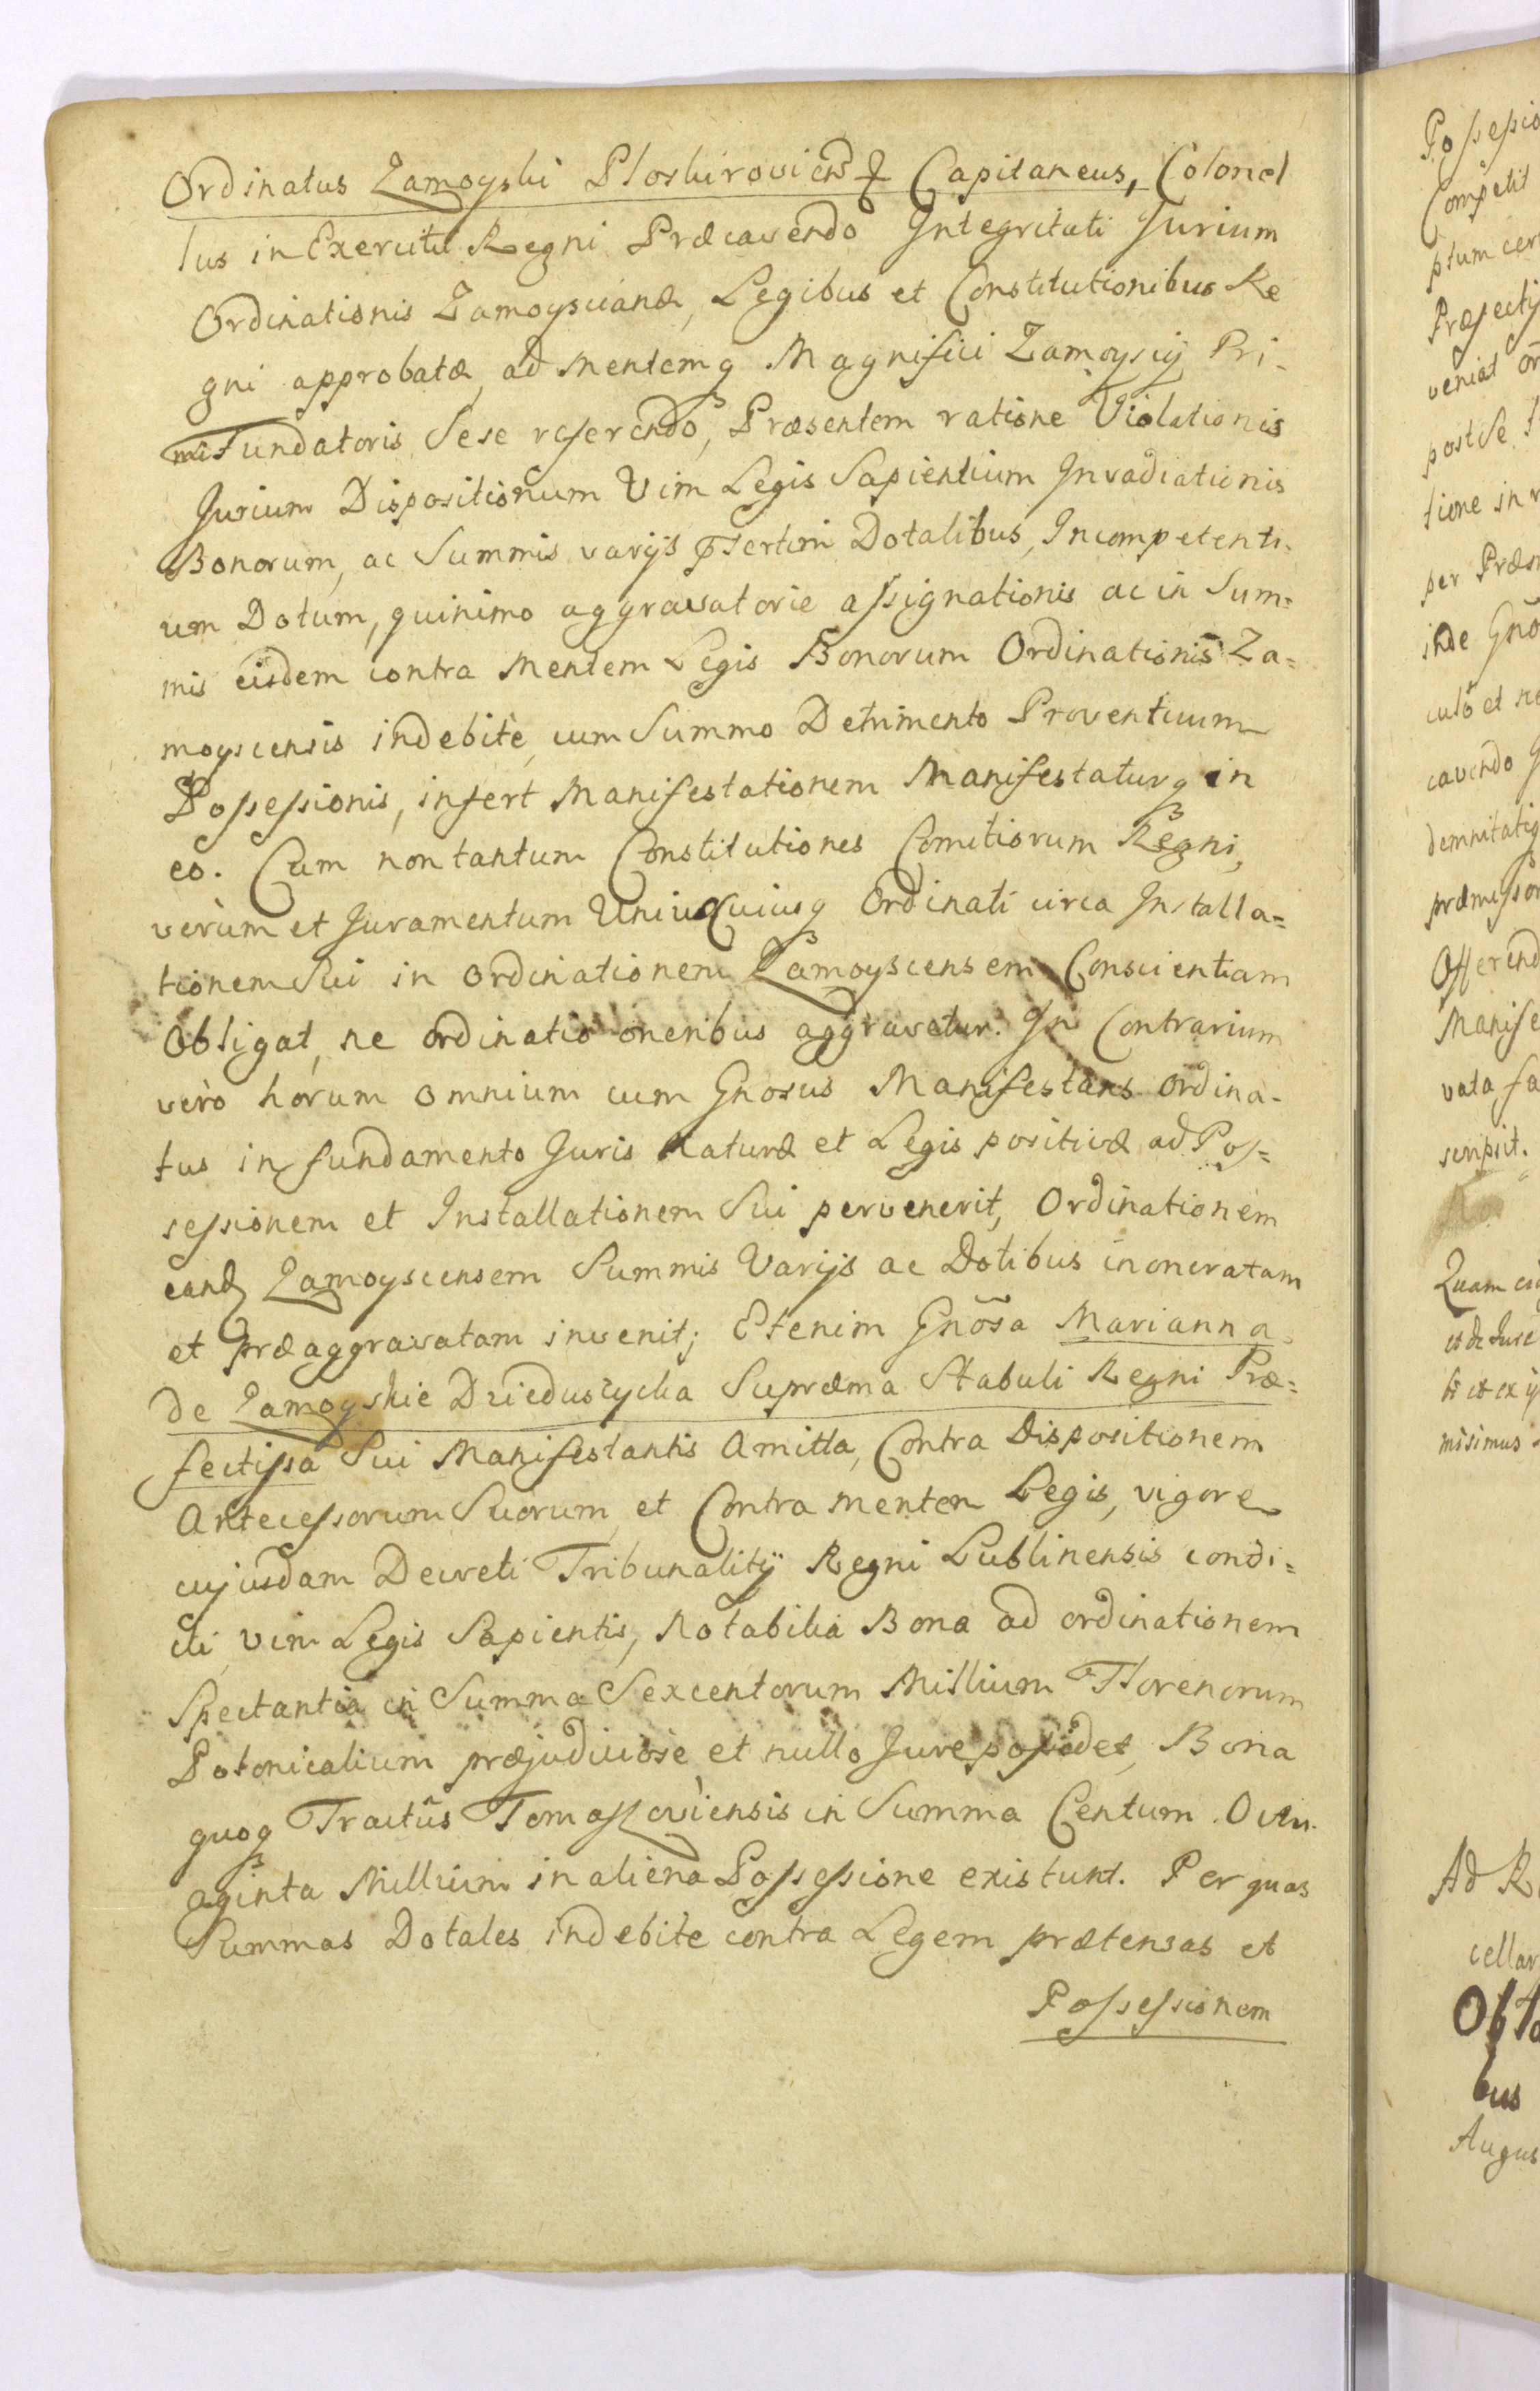 Ordinatus Zamoyski Ploskiroviens Capitaneus, Colonel
lus in Exercitu Regni Præcavendo Integritati Jurium
Ordinationis Zamoyscianæ, Legibus et Constitutionibus Re
gni approbatæ, ad Mentemq Magnifici Zamoyscij Pri-
mi Fundatoris Sese referendo, Præsentem ratione Violationis
Jurium Dispositionum Vim Legis Sapientium Invadiationis
Bonorum, ac Summis varijs Dotalibus, Incompetenti-
um Dotum, quinimo aggravatorie assignationis ac in Sum=
mis eisdem contra Mentem Legis Bonorum Ordinationis Za=
moyscensis indebitè, cum Summo Detrimento Proventuum
Possessionis, infert Manifestationem Manifestaturq in
eo. Cum non tantum Constitutiones Comitiorum Regni,
verùm et Juramentum Uniuscuiusq Ordinati circa Installa=
tionem Sui in Ordinationem Zamoyscensem Conscientiam
Obligat, ne ordinatio oneribus aggravetur. In Contrarium
verò horum omnium cum Gnosus Manifestans Ordina-
tus in fundamento Juris Naturæ et Legis positivæ ad Pos=
sessionem et Installationem Sui pervenerit, Ordinationem
eand Zamoyscensem Summis Varijs ac Dotibus inoneratam
et præaggravatam invenit; Etenim Gnõsa Marianna
de Zamoyskie Dzieduszycka Supræma Stabuli Regni Præ=
fectissa Sui Manifestantis Amitta, Contra Dispositionem
Antecessorum Suorum, et Contra mentem Legis, vigore
cujusdam Decreti Tribunalitij Regni Lublinensis condi=
cti, vim Legis Sapientis, Notabilia Bona ad ordinationem
Spectantia in Summa Sexcentorum Millium Florenorum
Polonicalium præjudiciosè et nullo Jure possidet, Bona
quoq Tractûs Tomaszoviensis in Summa Centum Octu-
aginta Millium in aliena Possessione existunt. Per quas
Summas Dotales indebite contra Legem prætensas et
Possessionem
Possessio
Competit
ptum cer
veniat
post se
tione in
per Præ
inde Gno
et ne
cavendo
demnitatiq
præmisso
Offerend
Manife
vata fa
scripsit.
Quam
et de Jure
misimus
Ad R
cellar
bus
Augus